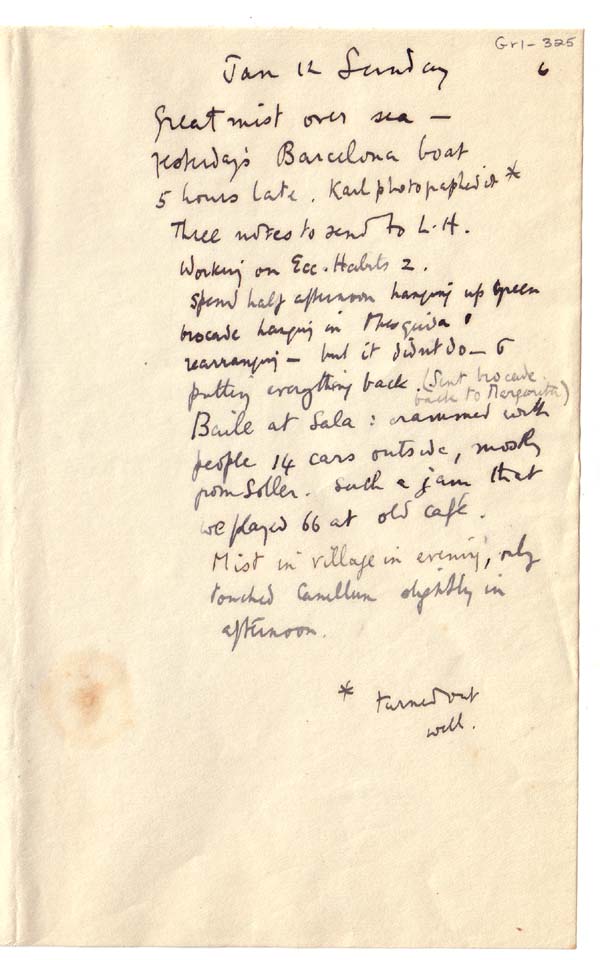 Gr1-325
Jan 12 Sunday
6
Great mist over sea –
yesterday's Barcelona boat
5 hours late. Karl photographed it *
Three notes to send to L.H.
Working on Ecc. Habits 2.
Spend half afternoon hanging up green
brocade hanging in Mesquida &
rearranging – but it didn't do – &
putting everything back. (Sent brocade
back to Margarita)
Baile at Sala : crammed with
people 14 cars outside, mostly
from Soller. Such a jam that
we played 66 at old café.
Mist in village in evening, only
touched Canellun slightly in
afternoon.
* turned out
well.